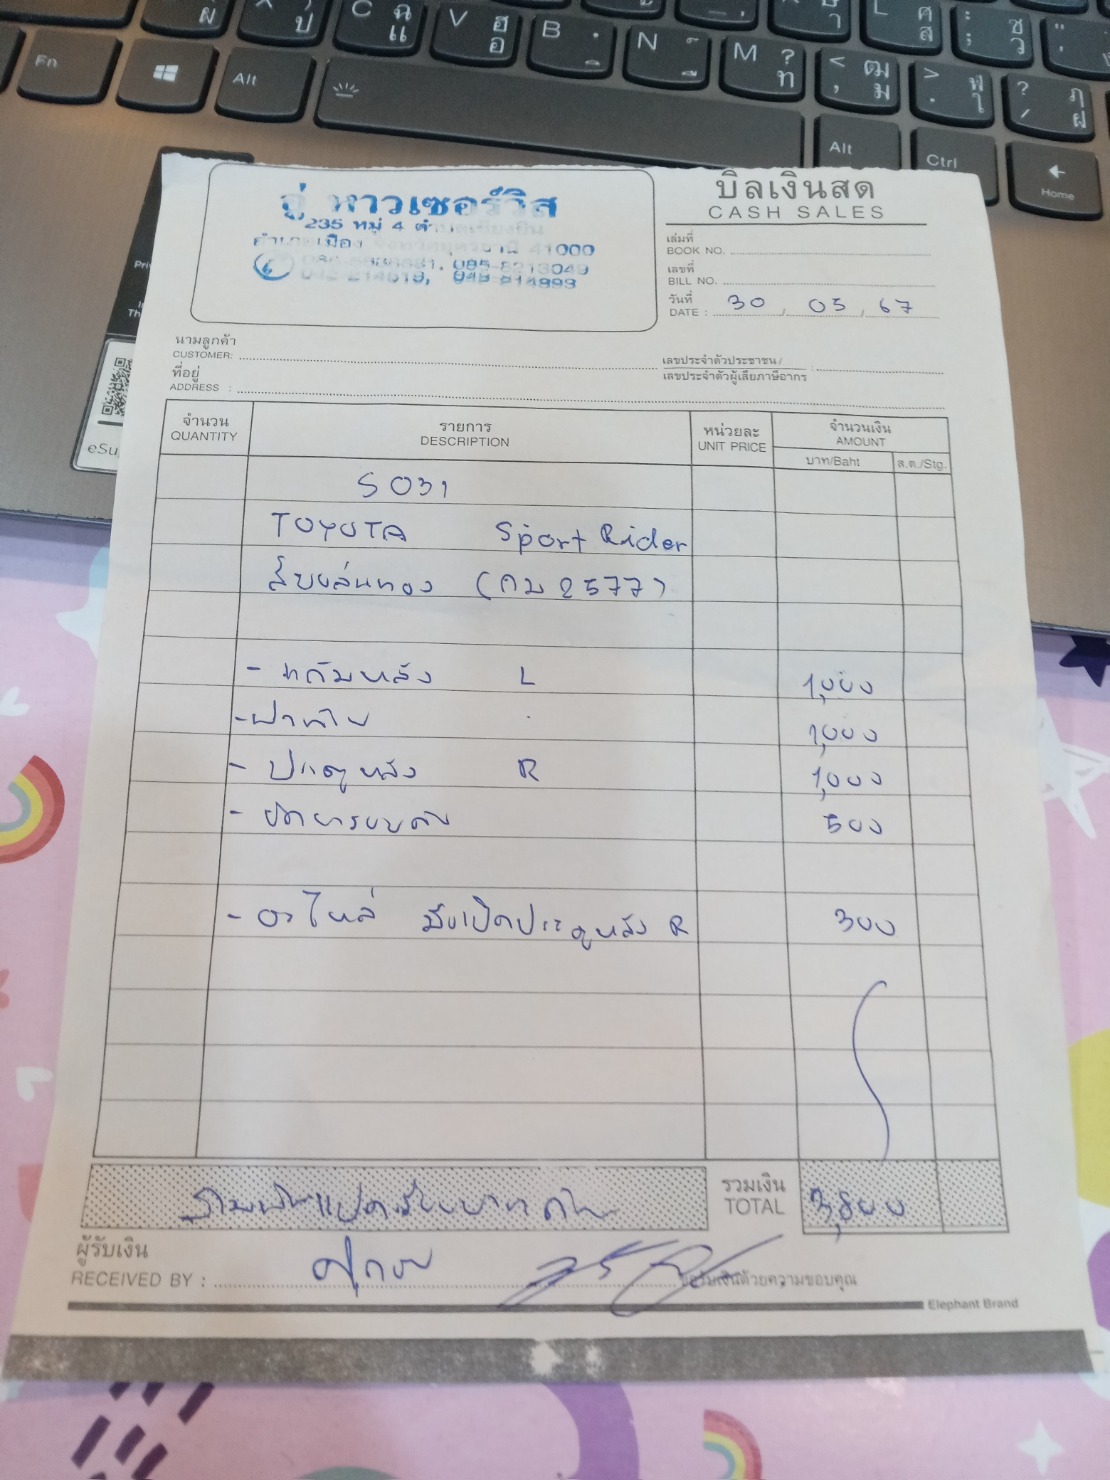 Fn
Alt
C ฉ แ
V ฮ อ
B
N
M ? ท
< ฒ , ม
L ศ ส
; ซ ว
Alt
Ctrl
Home
อู่ หาวเซอร์วิส
235 หมู่ 4 ตำบลเชียงยืน
อำเภอเมือง จังหวัดอุดรธานี 41000
บิลเงินสด
CASH SALES
เล่มที่
BOOK NO.
เลขที่
BILL NO.
วันที่
DATE : 30 / 05 / 67
นามลูกค้า
CUSTOMER:
ที่อยู่
ADDRESS :
เลขประจำตัวประชาชน /
เลขประจำตัวผู้เสียภาษีอากร :
จำนวน รายการ หน่วยละ จำนวนเงิน
QUANTITY DESCRIPTION UNIT PRICE AMOUNT
บาท/Baht ส.ต./Stg.
5031
TOYOTA Sport Rider
(กม 2577)
- แก้มหลัง L 1,000
- ฝาท้าย 1,000
- ประตูหลัง R 1,000
500
- อะไหล่ มือเปิดประตูหลัง R 300
รวมเงิน
TOTAL 3,800
ผู้รับเงิน
RECEIVED BY :
ขอรับเงินด้วยความขอบคุณ
Elephant Brand